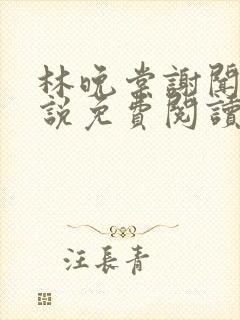 林晚棠謝聞
說免費閱讀
汪長青